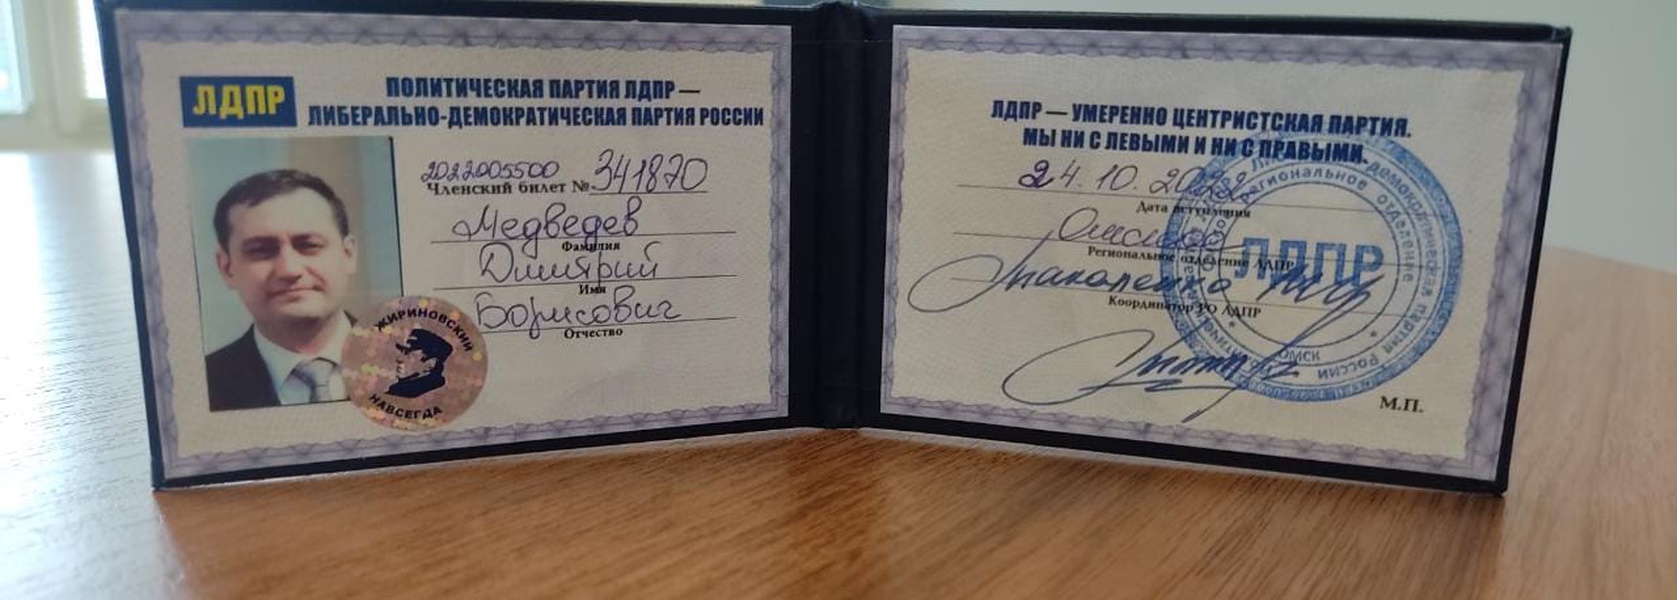 ЛДПР
ПОЛИТИЧЕСКАЯ ПАРТИЯ ЛДПР —
ЛИБЕРАЛЬНО-ДЕМОКРАТИЧЕСКАЯ ПАРТИЯ РОССИИ
2022005500
Членский билет № 341870
Медведев
Фамилия
Дмитрий
Имя
Борисович
Отчество
ЖИРИНОВСКИЙ
НАВСЕГДА
ЛДПР — УМЕРЕННО ЦЕНТРИСТСКАЯ ПАРТИЯ.
МЫ НИ С ЛЕВЫМИ И НИ С ПРАВЫМИ.
24.10.2022
Дата вступления
Омское
Региональное отделение ЛДПР
Макаленко
Координатор РО ЛДПР
М.П.
региональное отделение
ЛДПР
ОМСК
демократическая партия России